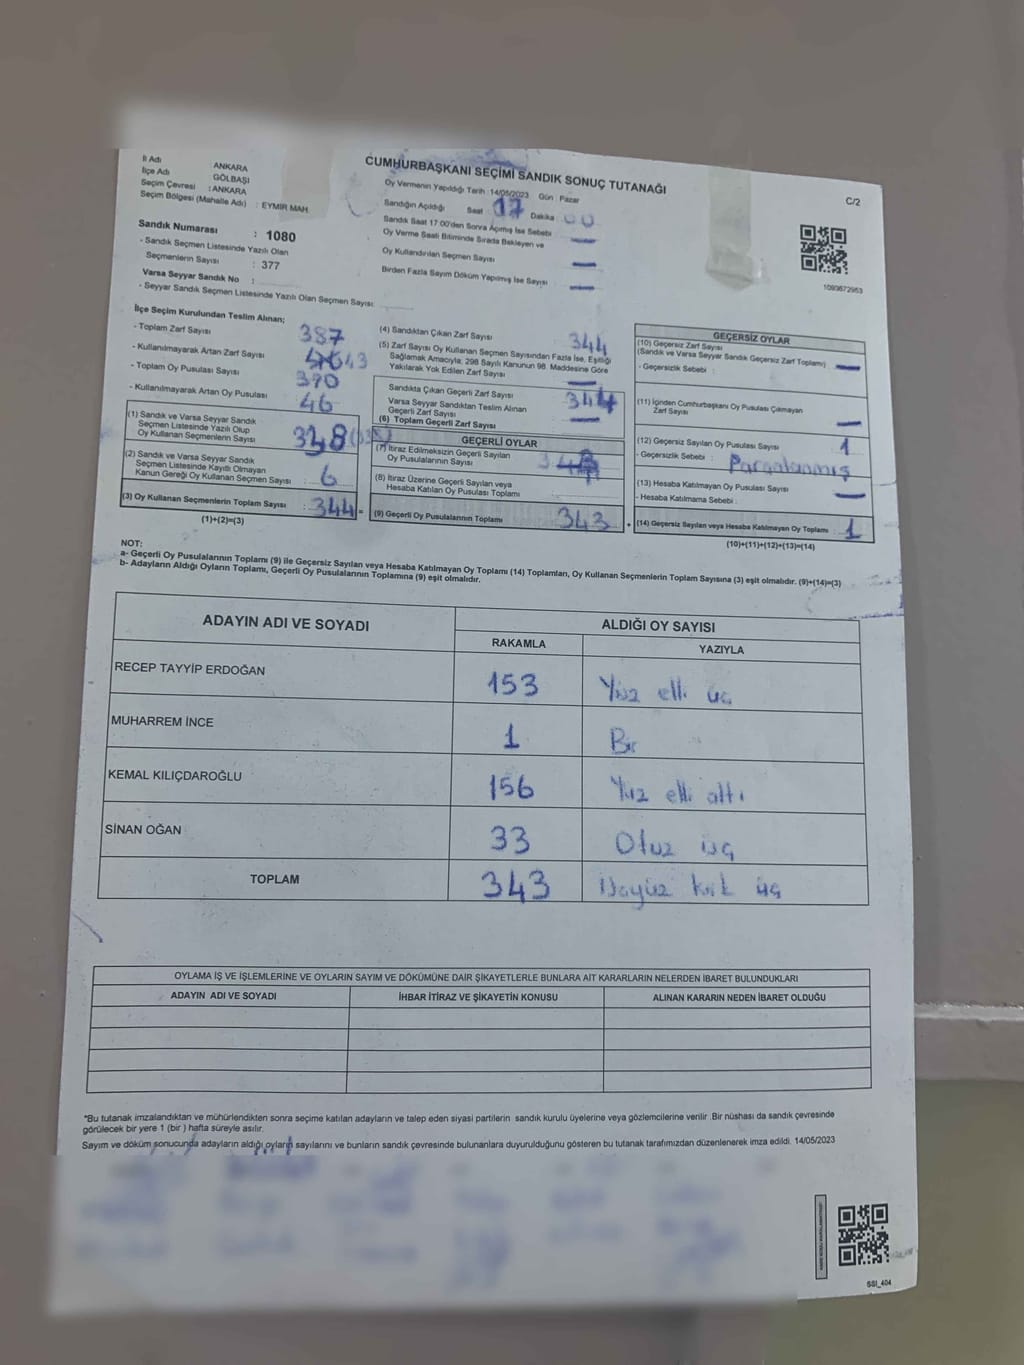 CUMHURBAŞKANI SEÇİMİ SANDIK SONUÇ TUTANAĞI
C/2
İl Adı ANKARA
İlçe Adı GÖLBAŞI
Seçim Çevresi : ANKARA
Seçim Bölgesi (Mahalle Adı) : EYMİR MAH.
Sandık Numarası : 1080
- Sandık Seçmen Listesinde Yazılı Olan
Seçmenlerin Sayısı : 377
Varsa Seyyar Sandık No :
- Seyyar Sandık Seçmen Listesinde Yazılı Olan Seçmen Sayısı:
Oy Vermenin Yapıldığı Tarih : 14/05/2023 Gün : Pazar
Sandığın Açıldığı Saat 17 Dakika : 00
Sandık Saat 17:00'den Sonra Açılmış İse Sebebi —
Oy Verme Saati Bitiminde Sırada Bekleyen ve
Oy Kullandırılan Seçmen Sayısı —
Birden Fazla Sayım Döküm Yapılmış İse Sayısı —
1093672953
İlçe Seçim Kurulundan Teslim Alınan;
- Toplam Zarf Sayısı 387
- Kullanılmayarak Artan Zarf Sayısı 43
- Toplam Oy Pusulası Sayısı 390
- Kullanılmayarak Artan Oy Pusulası 46
(1) Sandık ve Varsa Seyyar Sandık
Seçmen Listesinde Yazılı Olup
Oy Kullanan Seçmenlerin Sayısı
(2) Sandık ve Varsa Seyyar Sandık
Seçmen Listesinde Kayıtlı Olmayan
Kanun Gereği Oy Kullanan Seçmen Sayısı : 6
(3) Oy Kullanan Seçmenlerin Toplam Sayısı : 344 =
(1)+(2)=(3)
(4) Sandıktan Çıkan Zarf Sayısı 344
(5) Zarf Sayısı Oy Kullanan Seçmen Sayısından Fazla İse, Eşitliği
Sağlamak Amacıyla; 298 Sayılı Kanunun 98. Maddesine Göre
Yakılarak Yok Edilen Zarf Sayısı —
Sandıkta Çıkan Geçerli Zarf Sayısı 344
Varsa Seyyar Sandıktan Teslim Alınan
Geçerli Zarf Sayısı —
(6) Toplam Geçerli Zarf Sayısı
GEÇERLİ OYLAR
(7) İtiraz Edilmeksizin Geçerli Sayılan
Oy Pusulalarının Sayısı
(8) İtiraz Üzerine Geçerli Sayılan veya
Hesaba Katılan Oy Pusulası Toplamı
(9) Geçerli Oy Pusulalarının Toplamı 343 +
GEÇERSİZ OYLAR
(10) Geçersiz Zarf Sayısı
(Sandık ve Varsa Seyyar Sandık Geçersiz Zarf Toplamı) : —
- Geçersizlik Sebebi :
(11) İçinden Cumhurbaşkanı Oy Pusulası Çıkmayan
Zarf Sayısı —
(12) Geçersiz Sayılan Oy Pusulası Sayısı 1
- Geçersizlik Sebebi : Parçalanmış
(13) Hesaba Katılmayan Oy Pusulası Sayısı —
- Hesaba Katılmama Sebebi :
(14) Geçersiz Sayılan veya Hesaba Katılmayan Oy Toplamı : 1
(10)+(11)+(12)+(13)=(14)
NOT:
a- Geçerli Oy Pusulalarının Toplamı (9) ile Geçersiz Sayılan veya Hesaba Katılmayan Oy Toplamı (14) Toplamları, Oy Kullanan Seçmenlerin Toplam Sayısına (3) eşit olmalıdır. (9)+(14)=(3)
b- Adayların Aldığı Oyların Toplamı, Geçerli Oy Pusulalarının Toplamına (9) eşit olmalıdır.
ADAYIN ADI VE SOYADI ALDIĞI OY SAYISI
RAKAMLA YAZIYLA
RECEP TAYYİP ERDOĞAN 153 Yüz elli üç
MUHARREM İNCE 1 Bir
KEMAL KILIÇDAROĞLU 156 Yüz elli altı
SİNAN OĞAN 33 Otuz üç
TOPLAM 343 Üçyüz kırk üç
OYLAMA İŞ VE İŞLEMLERİNE VE OYLARIN SAYIM VE DÖKÜMÜNE DAİR ŞİKAYETLERLE BUNLARA AİT KARARLARIN NELERDEN İBARET BULUNDUKLARI
ADAYIN ADI VE SOYADI İHBAR İTİRAZ VE ŞİKAYETİN KONUSU ALINAN KARARIN NEDEN İBARET OLDUĞU
*Bu tutanak imzalandıktan ve mühürlendikten sonra seçime katılan adayların ve talep eden siyasi partilerin sandık kurulu üyelerine veya gözlemcilerine verilir .Bir nüshası da sandık çevresinde
görülecek bir yere 1 (bir ) hafta süreyle asılır.
Sayım ve döküm sonucunda adayların aldığı oyların sayılarını ve bunların sandık çevresinde bulunanlara duyurulduğunu gösteren bu tutanak tarafımızdan düzenlenerek imza edildi. 14/05/2023
SSI_404